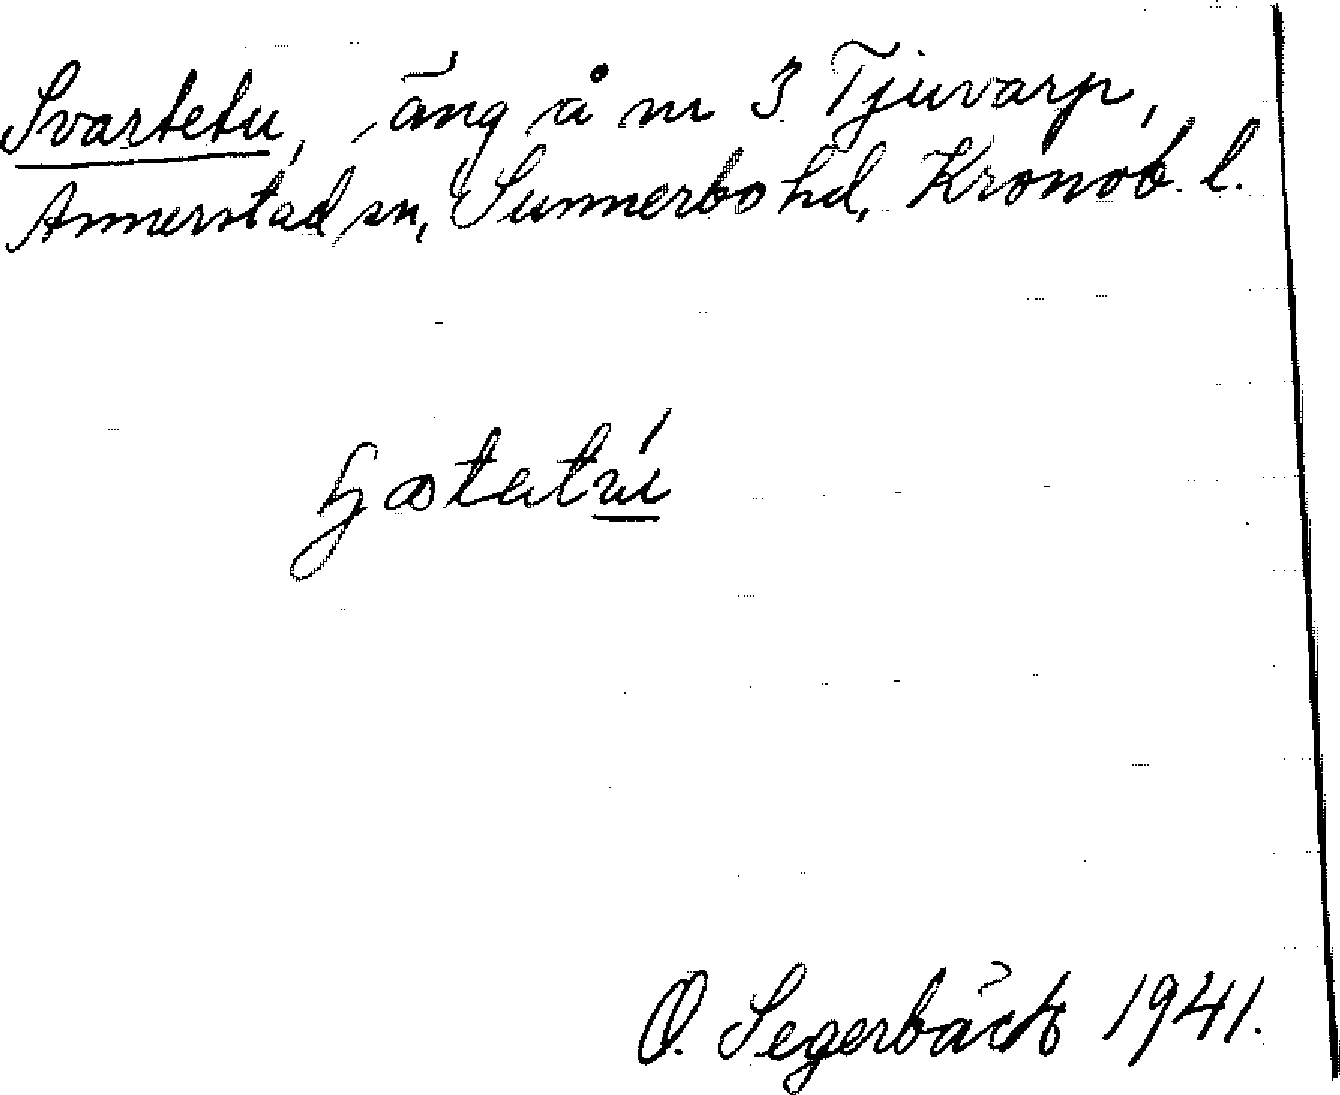 Svartetu, äng å nr 3 Tjuvarp,
Annerstad sn, Sunnerbo hd, Kronob. l.
O. Segerbäck 1941.